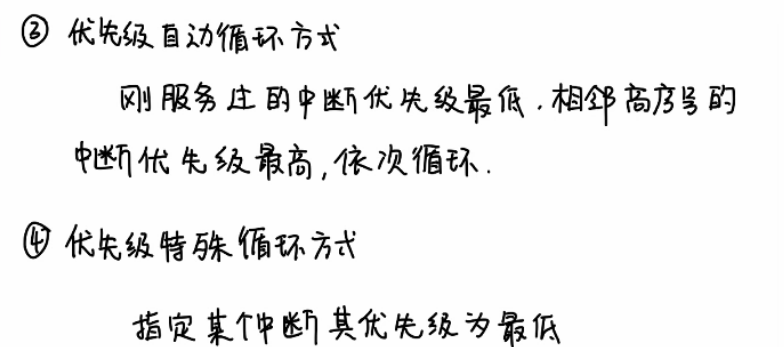 ③ 优先级自动循环方式
刚服务过的中断优先级最低.相邻高序号的
中断优先级最高,依次循环.
④ 优先级特殊循环方式
指定某个中断其优先级为最低